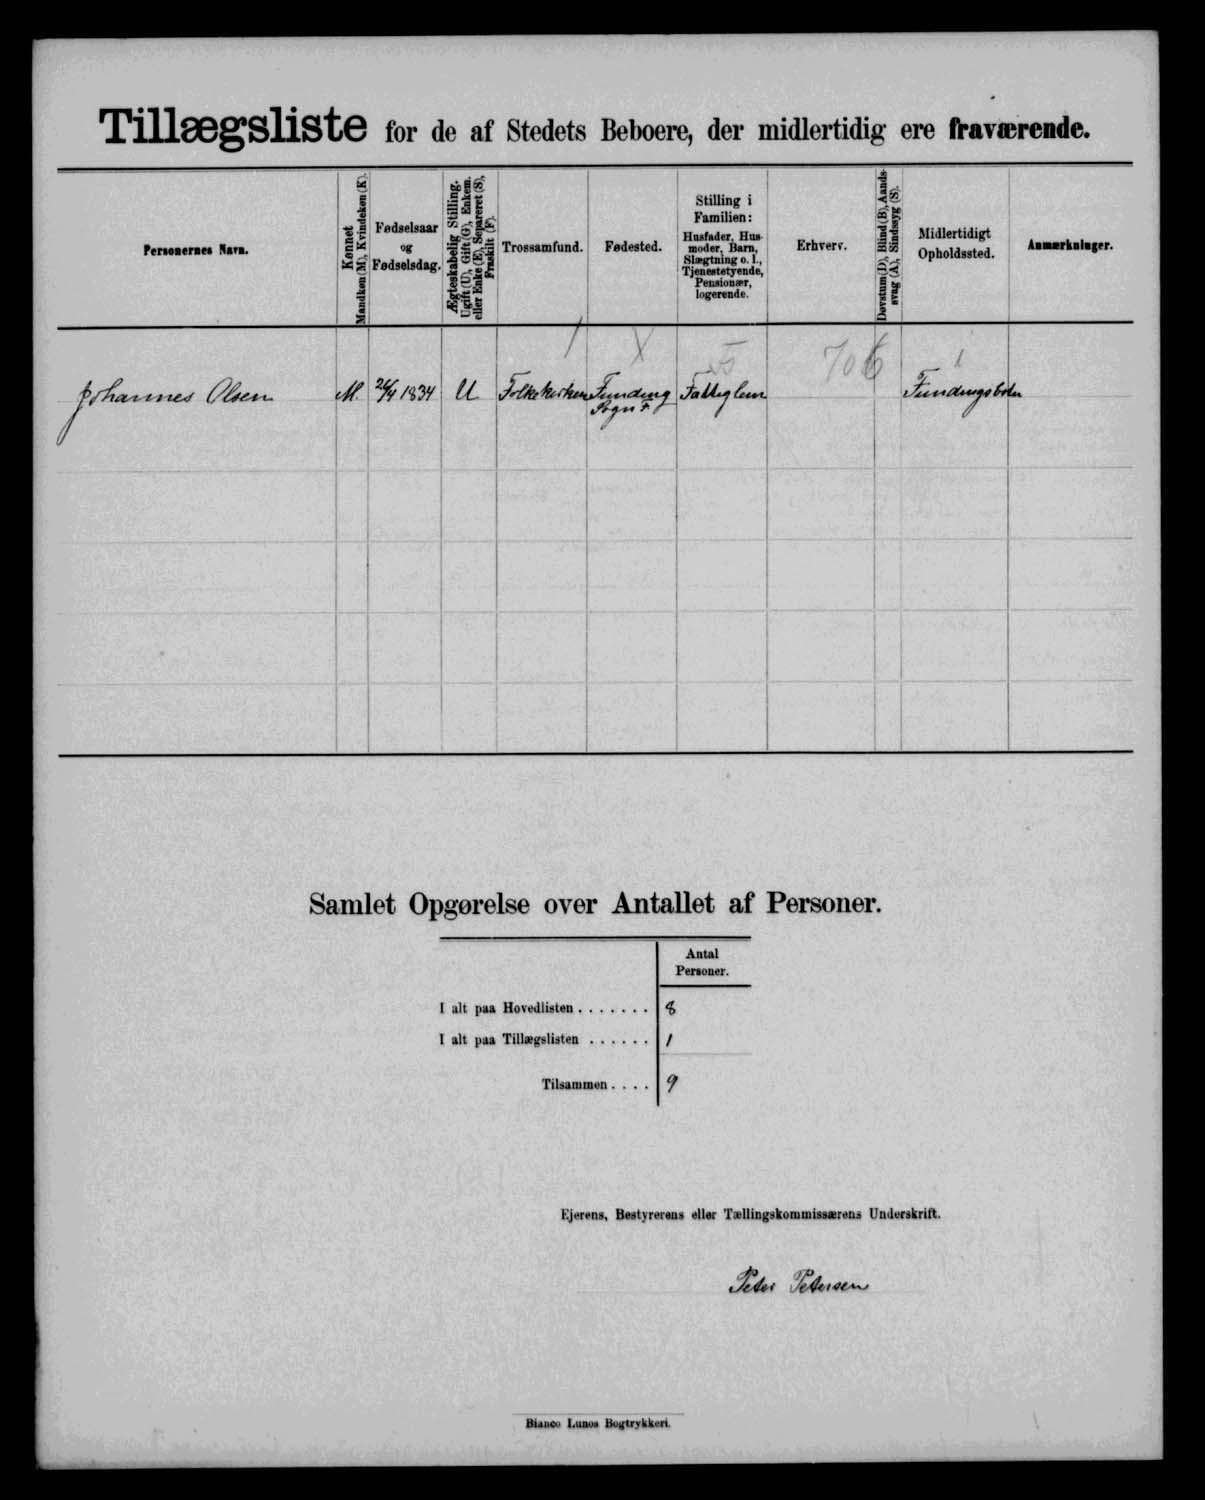 Tillægsliste for de af Stedets Beboere, der midlertidig ere fraværende.
Personernes Navn.
Kønnet
Mandkøn (M), Kvindekøn (K).
Fødselsaar
og
Fødselsdag.
Ægteskabelig Stilling.
Ugift (U), Gift (G), Enkem.
eller Enke (E), Separeret (S),
Fraskilt (F).
Trossamfund.
Fødested.
Stilling i
Familien:
Husfader, Hus-
moder, Barn,
Slægtning o. l.,
Tjenestetyende,
Pensionær,
logerende.
Erhverv.
Døvstum (D), Blind (B), Aands-
svag (A), Sindssyg (S).
Midlertidigt
Opholdssted.
Anmærkninger.
Johannes Olsen M. 26/4 1834 U Folkekirken Funding Sogn F. Fatteglem Fundingsboten
Samlet Opgørelse over Antallet af Personer.
Antal
Personer.
I alt paa Hovedlisten . . . . . . . 8
I alt paa Tillægslisten . . . . . . 1
Tilsammen . . . . 9
Ejerens, Bestyrerens eller Tællingskommissærens Underskrift.
Peter Petersen
Bianco Lunos Bogtrykkeri.